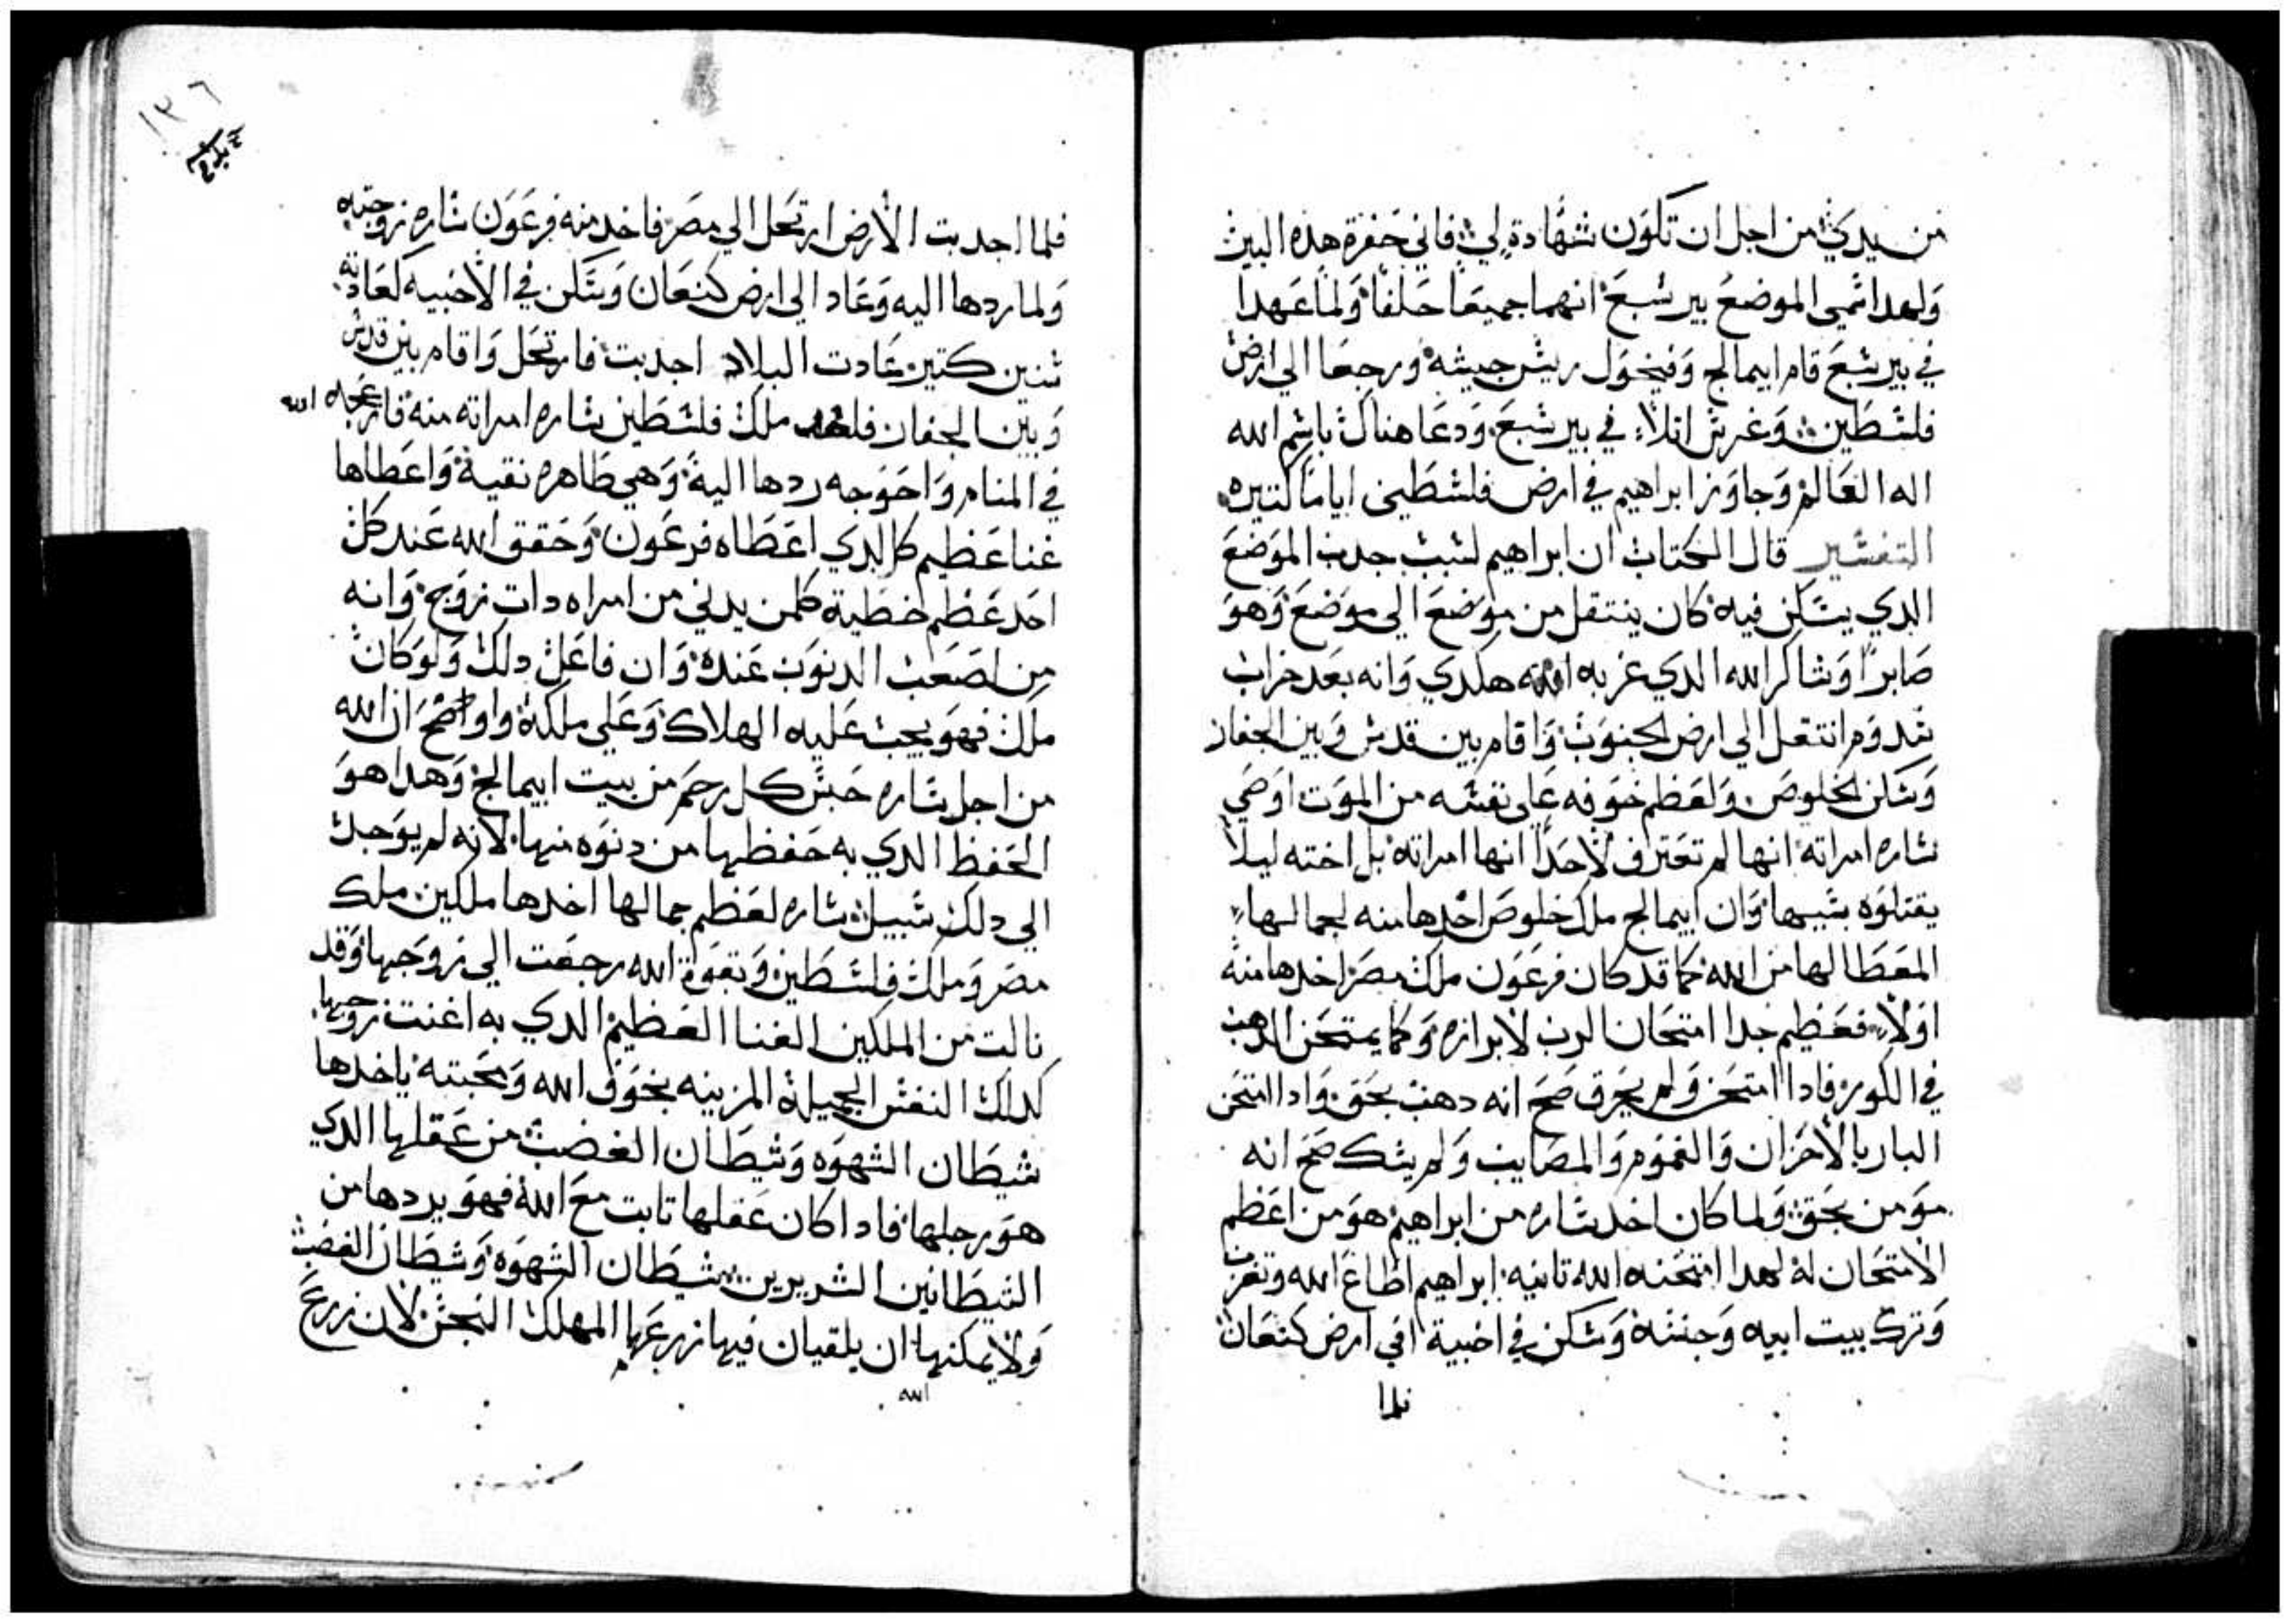 من يدي من اجل ان تكون شهادة لي فاني حفرة هده البير
ولهدا سمي الموضع بير سبع انهما جميعا حلفا ولما عهدا
في بير سبع قام ابيمالخ وفيخول ريس جيشه ورجعا الي ارض
فلسطين وغرس اثلاء في بير سبع ودعا هناك باسم الله
اله العالم وجاوز ابراهيم في ارض فلسطين اياما كثيره
التفسير قال الكتاب ان ابراهيم لسبب جدب الموضع
الدي يسكن فيه كان ينتقل من موضع الي موضع وهو
صابرا وشاكر الله الدي غربه هكدي وانه بعد خراب
سدوم انتقل الي ارض الجنوب واقام بين قدس وبين الجفار
وسكن الخلوص ولعظم خوفه علي نفسه من الموت اوصي
ساره امراته انها لم تعترف لاحدا انها امراته بل اخته ليلا
يقتلوه بسبيها وان ابيمالخ ملك خلوص اخدها منه لجمالها
المعطا لها من الله كما قد كان فرعون ملك مصر اخدها منه
اولا فعظيم جدا امتحان الرب لابرازه وكما يمتحن الدهب
في الكوره فادا امتحن ولم يحرق صح انه دهب بحق وادا امتحن
البار بالاحزان والغموم والمصايب ولم يشك صح انه
مومن بحق ولما كان اخد ساره من ابراهيم هو من اعظم
الامتحان له لهدا امتحنه الله تانيه ابراهيم اطاع الله وتغرب
وترك بيت ابيه وجنسه وسكن في اخبية في ارض كنعان
فلما
١٣٦
فلما اجدبت الارض ارتحل الي مصر فاخد منه فرعون ساره زوجته
ولما ردها اليه وعاد الي ارض كنعان وسكن في الاخبيه كعادته
سنين كتير عادت البلاد اجدبت فارتحل واقام بين قدس
وبين الجفار فاخد ملك فلسطين ساره امراته منه فازعجه الله
في المنام واحوجه ردها اليه وهي طاهره نقية واعطاها
غنا عظيم كالدي اعطاه فرعون وحقق الله عند كل
احد عظم خطية كلمن يدني من امراه دات زوج وانه
من اصعب الدنوب عنده وان فاعل دلك ولو كان
ملك فهو يجب عليه الهلاك وعلي ملكه واوضح ان الله
من اجل ساره حبس كل رحم من بيت ابيمالخ وهدا هو
الحفظ الدي به حفظها من دنوه منها لانه لم يوجد
الي دلك سبيل ساره لعظم جمالها اخدها ملكين ملك
مصر وملك فلسطين وبقوة الله رجعت الي زوجها وقد
نالت من الملكين الغنا العظيم الدي به اغنت زوجها
كدلك النفس الجميلة المزينه بخوف الله ومحبته ياخدها
شيطان الشهوه وشيطان الغضب من عقلها الدي
هو رجلها فادا كان عقلها تابت مع الله فهو يردها من
الشيطانين الشريرين شيطان الشهوه وشيطان الغضب
ولا يمكنها ان يلقيان فيها زرعهما المهلك النجس لان زرع
الله